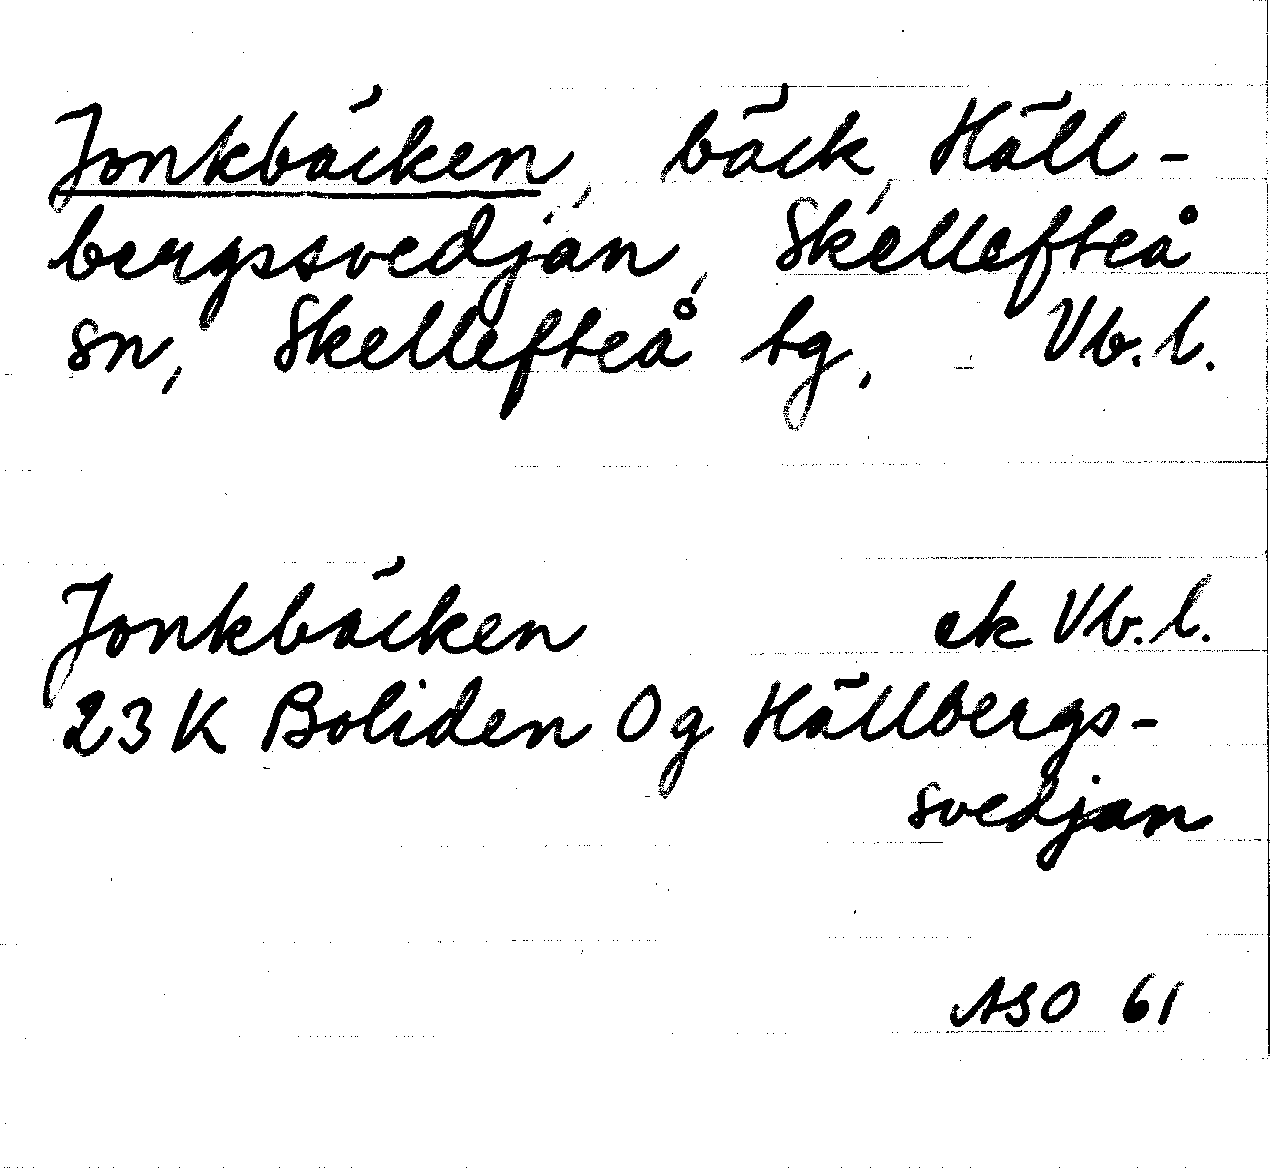 Jonkbäcken, bäck, Häll-
bergssvedjan, Skellefteå
sn, Skellefteå tg. Vb.l.
Jonkbäcken ek Vb.l.
23K Boliden 0g Hällbergs-
svedjan
ASO 61